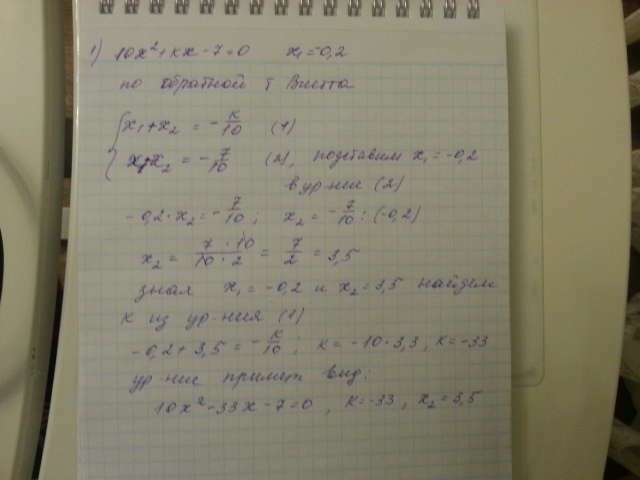 1) 10x²+kx-7=0 x₁=-0,2
по обратной т Виетта
{x₁+x₂ = -k/10 (1)
x₁x₂ = -7/10 (2), подставим x₁=-0,2
в ур-ние (2)
-0,2·x₂=-7/10; x₂=-7/10:(-0,2)
x₂ = 7·10/10·2 = 7/2 = 3,5
зная x₁=-0,2 и x₂=3,5 найдем
k из ур-ния (1)
-0,2+3,5=-k/10; k=-10·3,3, k=-33
ур-ние примет вид:
10x²-33x-7=0, k=-33, x₂=3,5